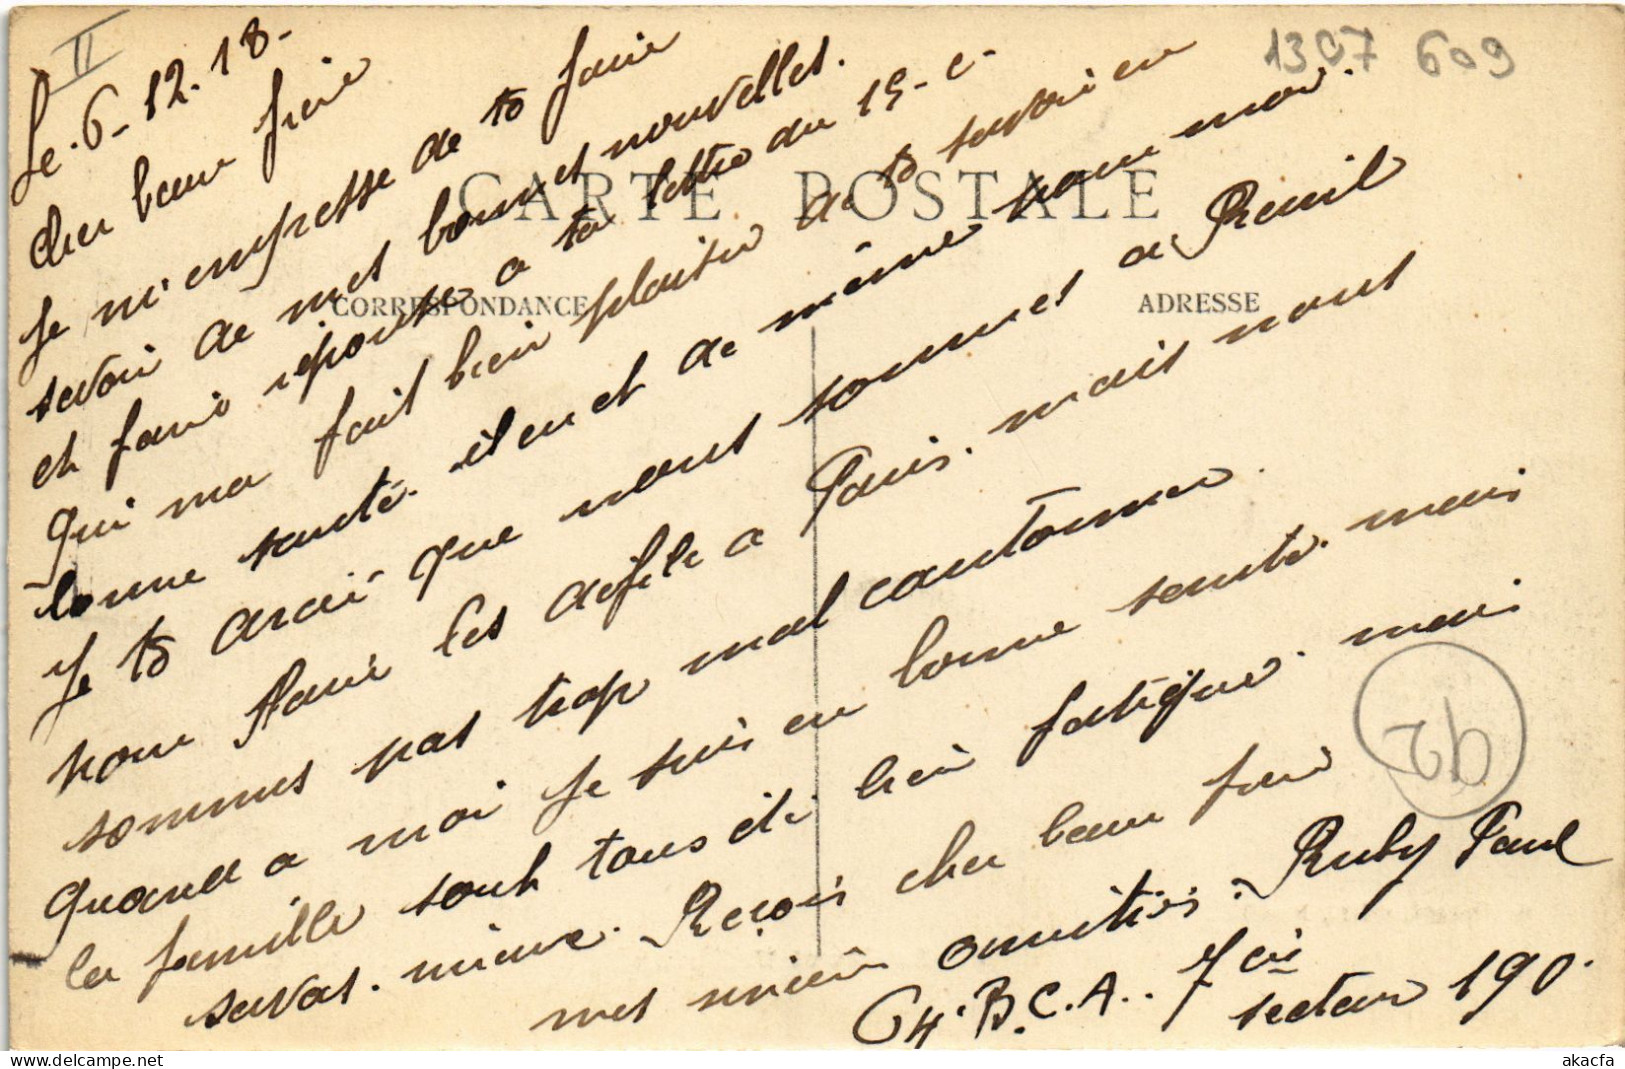 II
1307 609
Le 6-12-18-
Cher beau frère
Je m'empresse de te faire
CARTE POSTALE
savoir de mes bonnes nouvelles.
CORRESPONDANCE
ADRESSE
et faire réponse a ta lettre du 15-c-
qui ma fait bien plaisir de te savoir en
bonne santé. il en et de même pour moi.
Je te dirai que nous sommes a Reuil
pour faire les défilé a Paris. mais nous
sommes pas trop mal cantonner.
Quand a moi je suis en bonne santé. mais
la famille sont tous été bien fatigué. mais
savas. mieux. Reçois cher beau frère
mes meilleurs amitiés. Ruby Paul
64 B.C.A.. 7 cie
secteur 190.
92
akacfa